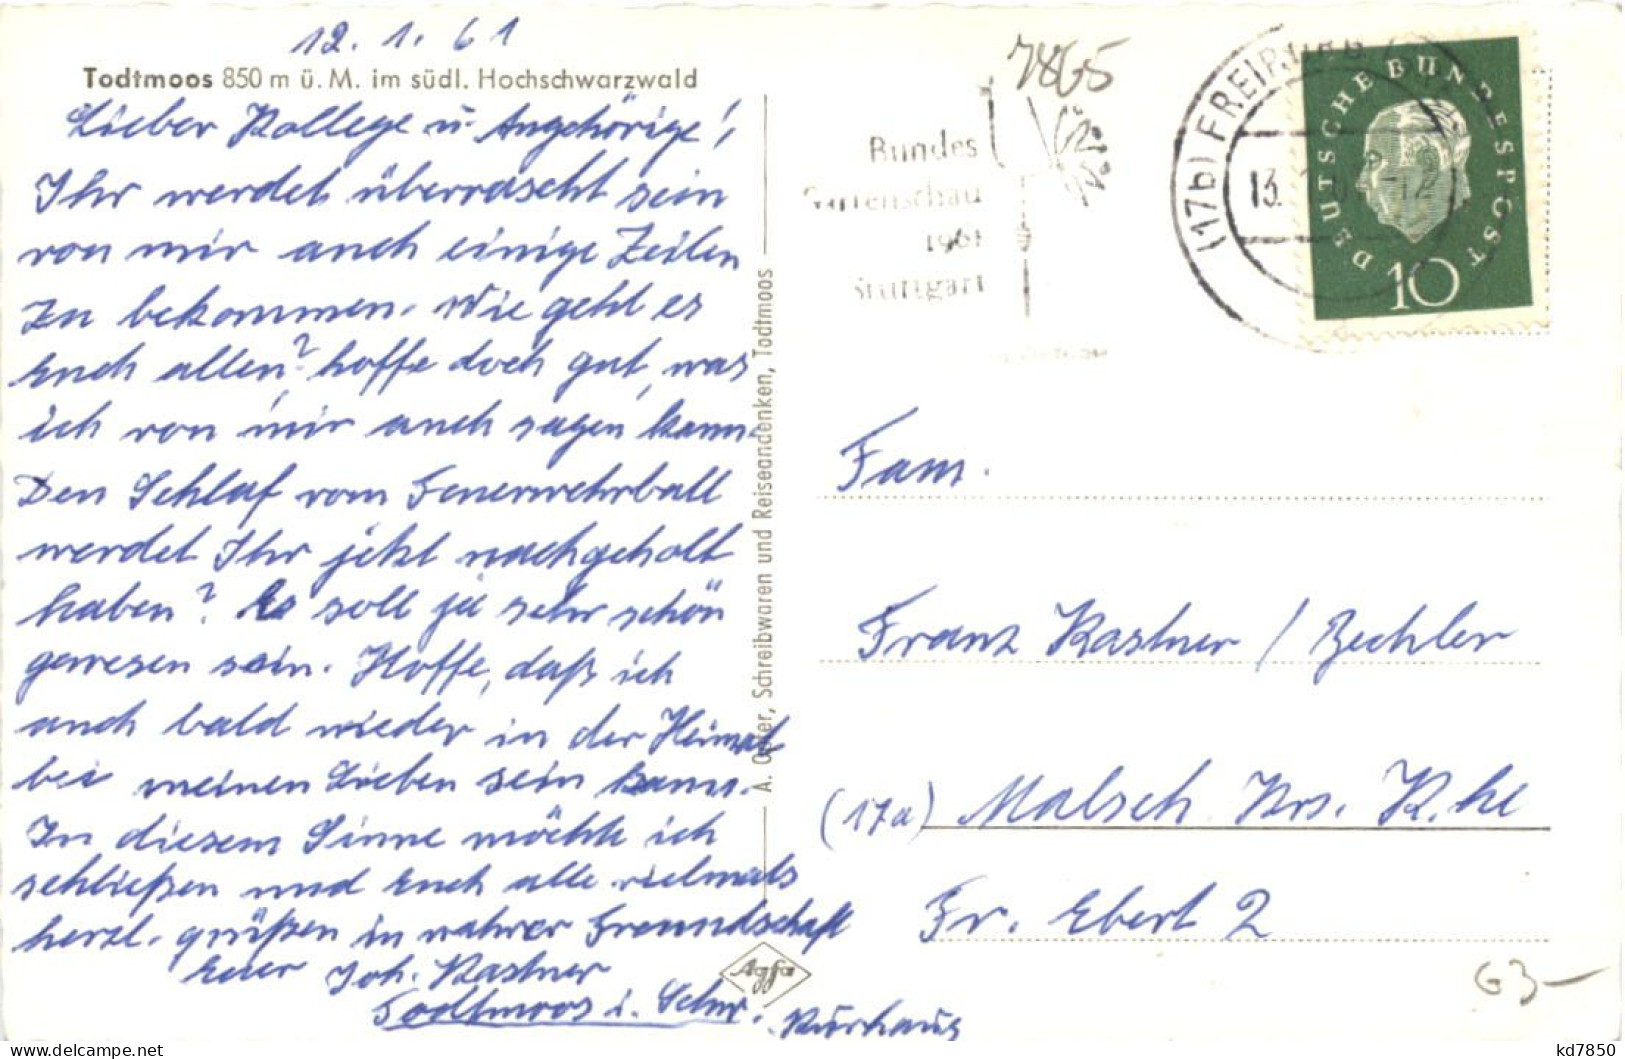 12. 1. 61
Todtmoos 850 m ü. M. im südl. Hochschwarzwald
Lieber Kollege u. Angehörige!
Ihr werdet überrascht sein
von mir auch einige Zeilen
zu bekommen. Wie geht es
Euch allen? hoffe doch gut, was
ich von mir auch sagen kann.
Den Schlaf vom Feuerwehrball
werdet Ihr jetzt nachgeholt
haben? Es soll ja sehr schön
gewesen sein. Hoffe, daß ich
auch bald wieder in der Heimat
bei meinen Lieben sein kann.
In diesem Sinne möchte ich
schließen und Euch alle vielmals
herzl. grüßen in wahrer Freundschaft
Euer Joh. Kastner
Todtmoos i. Schw. Kurhaus
A. Opfer, Schreibwaren und Reiseandenken, Todtmoos
Agfa
7865
Bundes
Gartenschau
1961
Stuttgart
(17b) FREIBURG
13.
DEUTSCHE BUNDESPOST
10
Fam.
Franz Kastner / Bechler
(17a) Malsch Krs. K.he
Fr. Ebert 2
G3-
kd7850